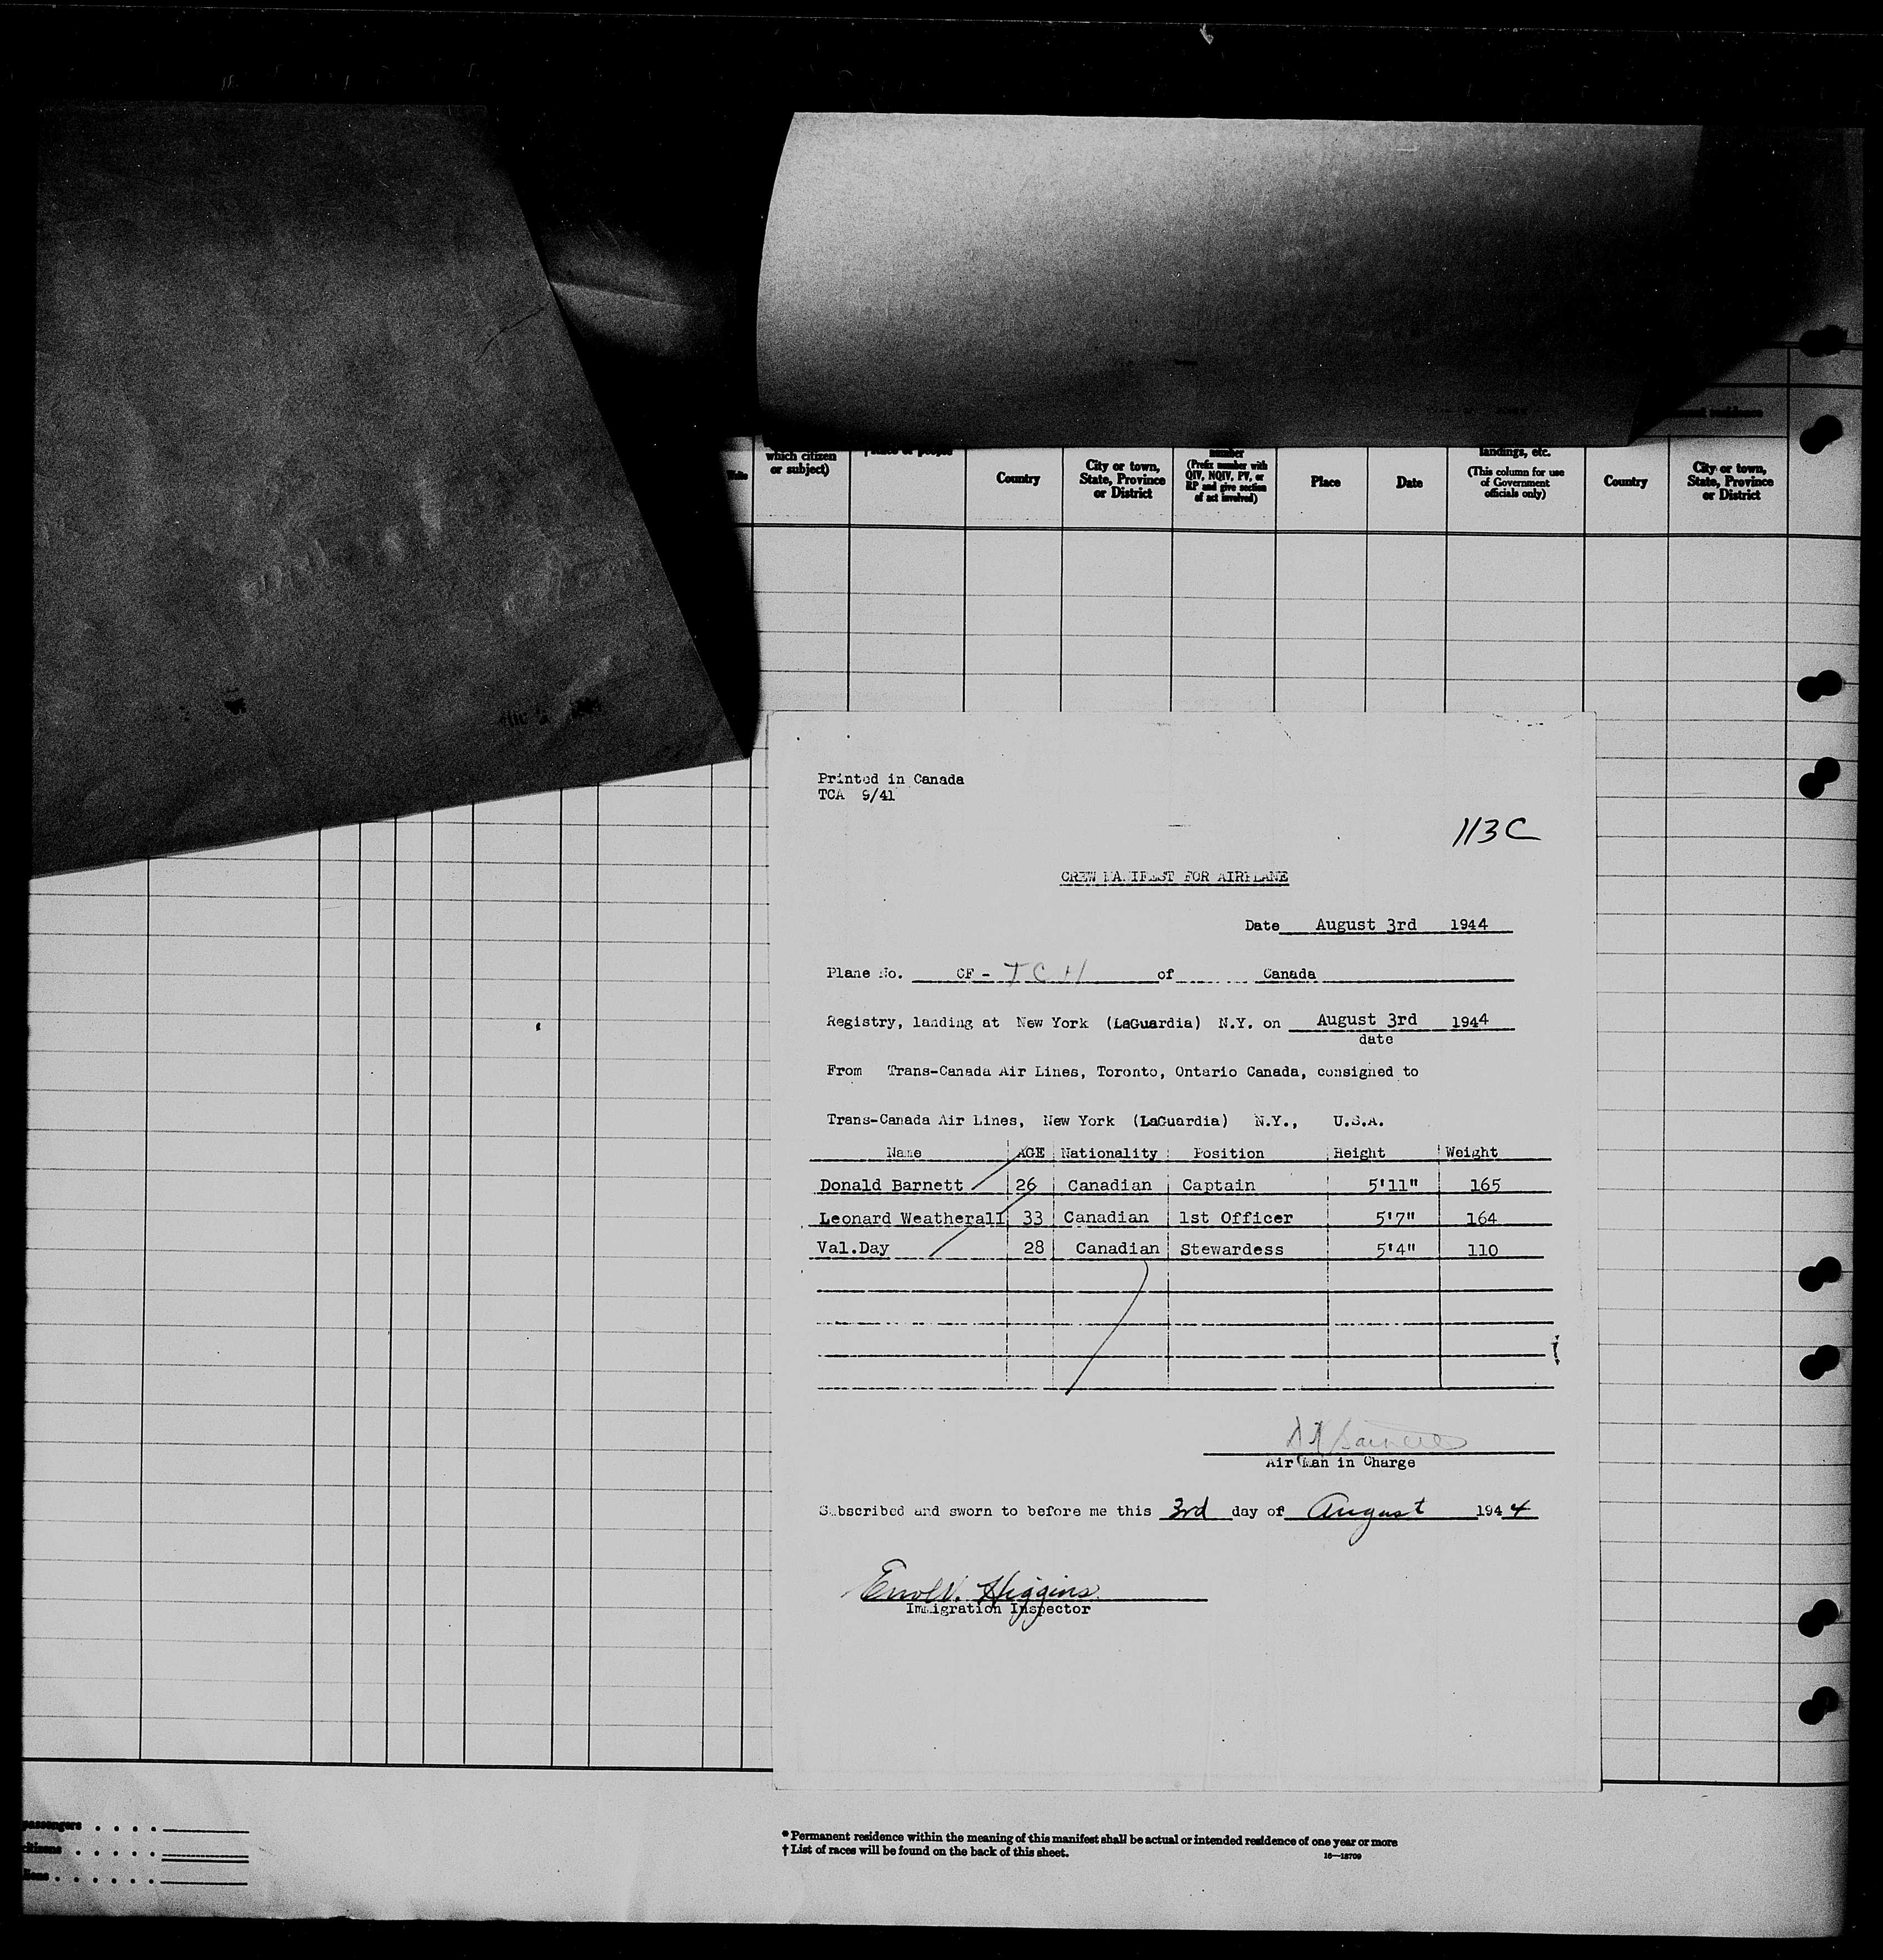 which citizen
or subject)
Country
City or town,
State, Province
or District
number
(Prefix number with
QIV, NQIV, PV, or
RP and give section
of act involved)
Place
Date
landings, etc.
(This column for use
of Government
officials only)
Country
City or town,
State, Province
or District
Printed in Canada
TCA 9/41
113C
CREW MANIFEST FOR AIRPLANE
Date August 3rd 1944
Plane No. CF - TCH of Canada
Registry, landing at New York (LaGuardia) N.Y. on August 3rd 1944
date
From Trans-Canada Air Lines, Toronto, Ontario Canada, consigned to
Trans-Canada Air Lines, New York (LaGuardia) N.Y., U.S.A.
Name AGE Nationality Position Height Weight
Donald Barnett 26 Canadian Captain 5'11" 165
Leonard Weatherall 33 Canadian 1st Officer 5'7" 164
Val.Day 28 Canadian Stewardess 5'4" 110
Air Man in Charge
Subscribed and sworn to before me this 3rd day of August 1944
Higgins
Immigration Inspector
passengers
citizens
* Permanent residence within the meaning of this manifest shall be actual or intended residence of one year or more
† List of races will be found on the back of this sheet.
16—18709